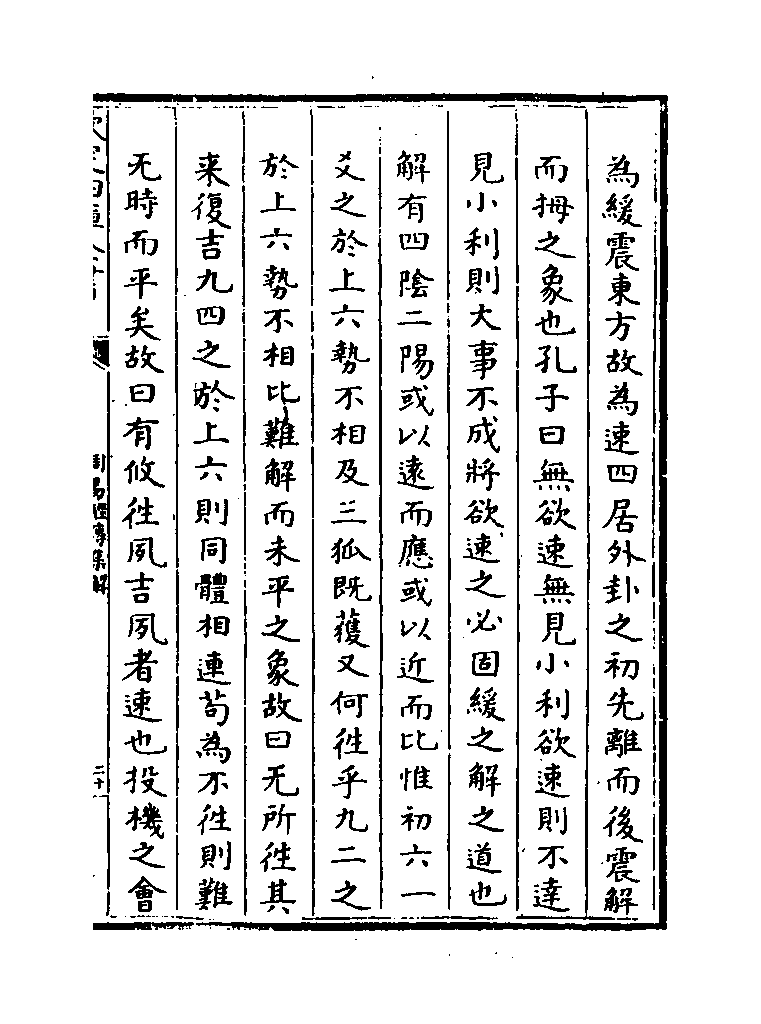 為緩震東方故為速四居外卦之初先離而後震解
而拇之象也孔子曰無欲速無見小利欲速則不達
見小利則大事不成將欲速之必固緩之解之道也
解有四陰二陽或以遠而應或以近而比惟初六一
爻之於上六勢不相及三狐既獲又何徃乎九二之
於上六勢不相比難解而未平之象故曰无所徃其
来復吉九四之於上六則同體相連苟為不徃則難
无時而平矣故曰有攸徃夙吉夙者速也投機之會
欽定四庫全書
周易經傳集解
二十